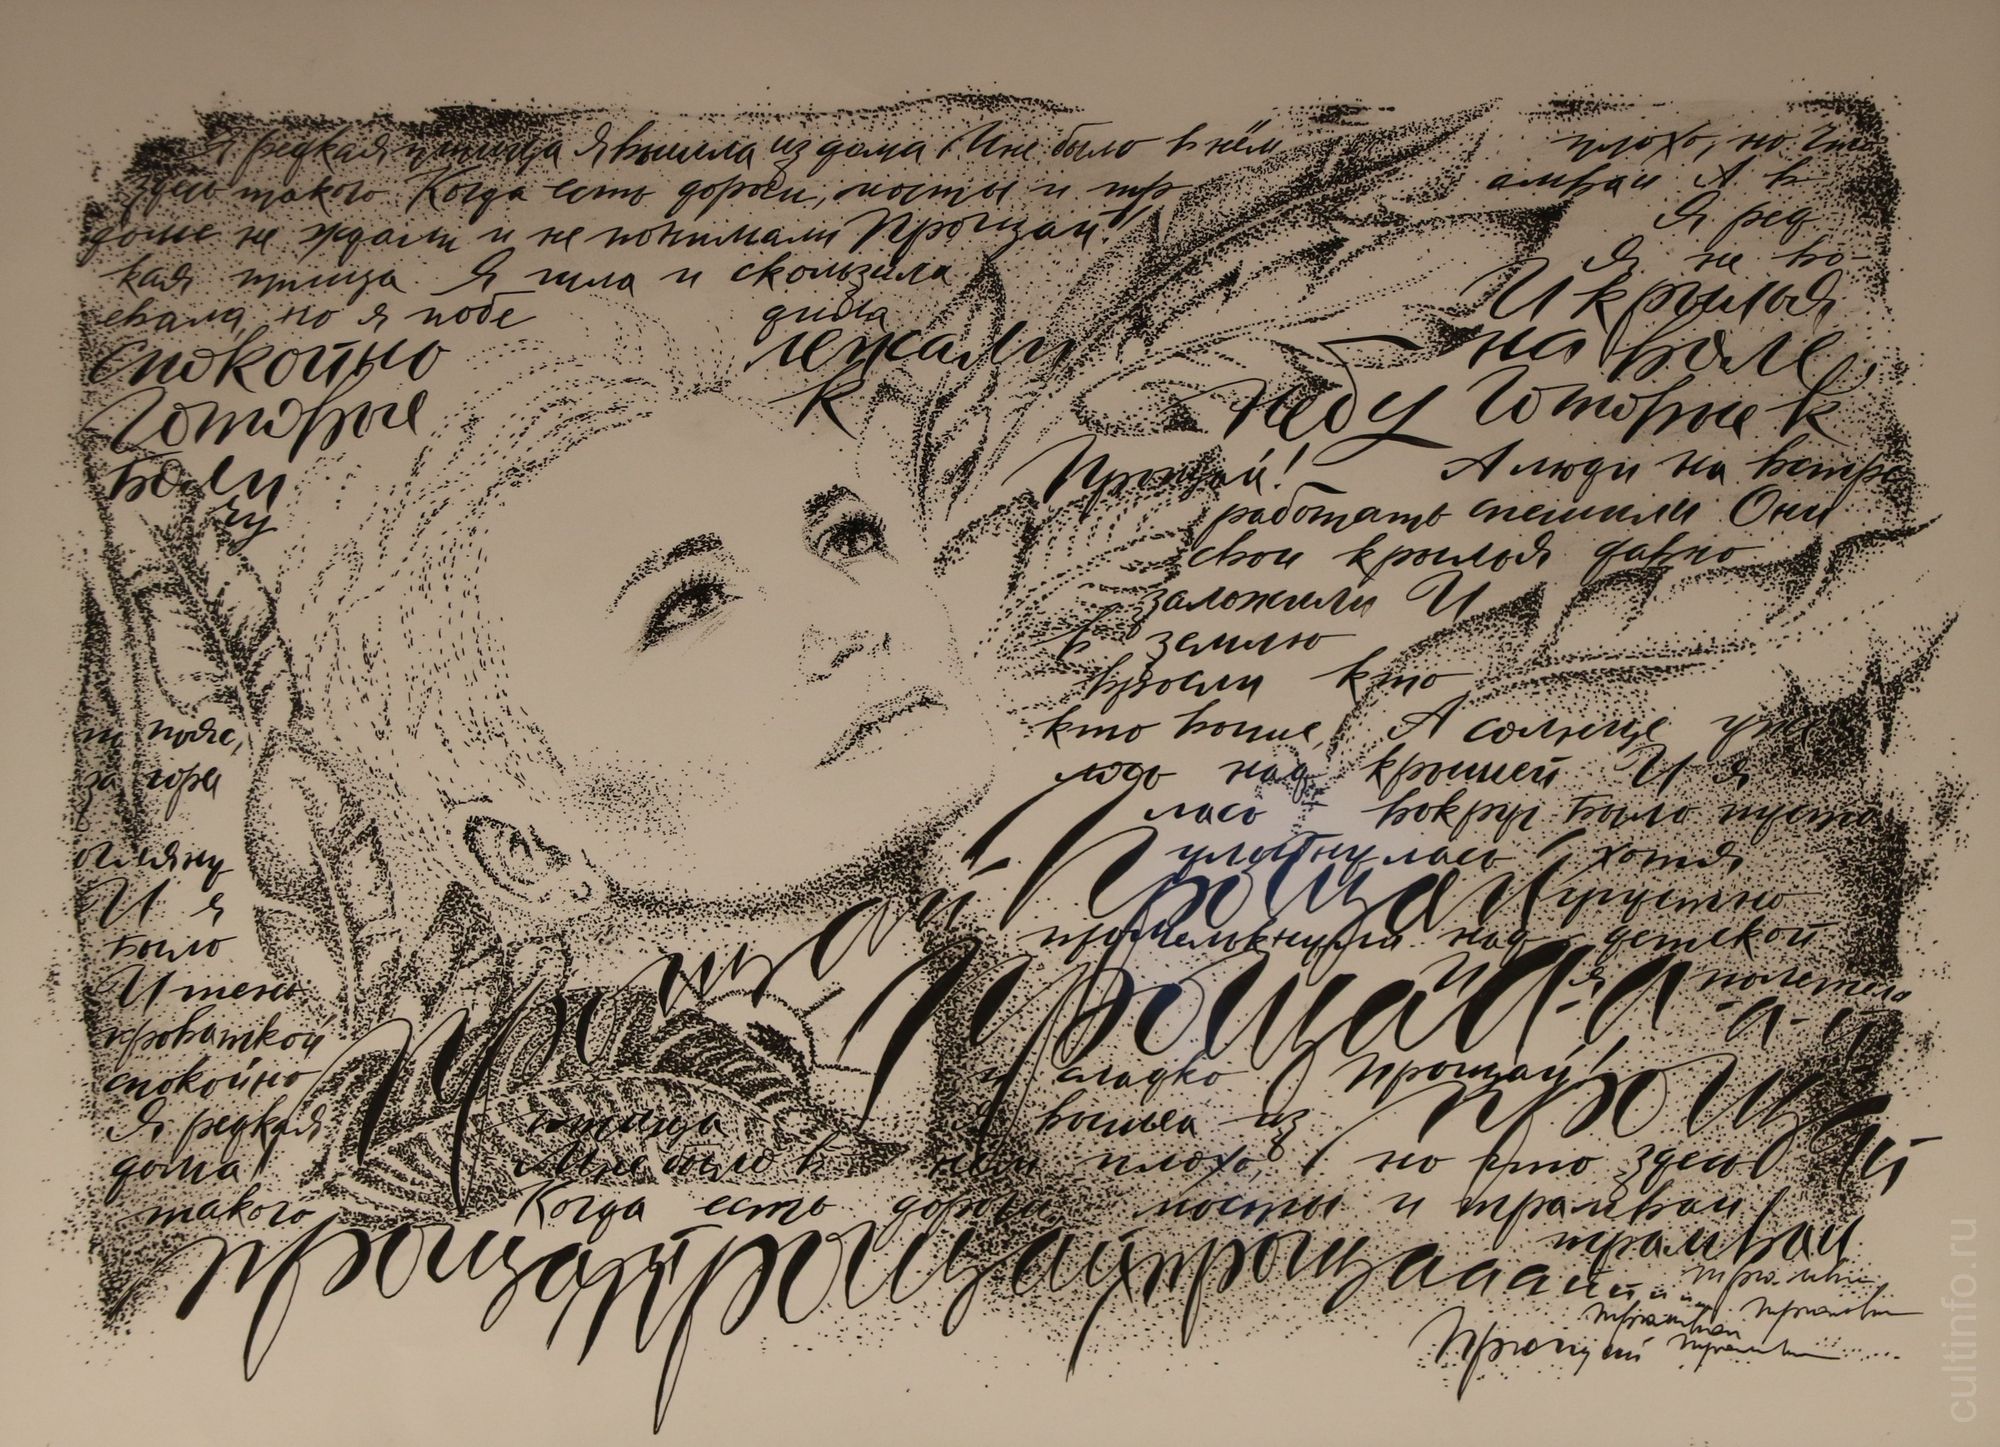 Я редкая птица Я вышла из дома Мне было в нём плохо, но что
здесь такого Когда есть дороги, мосты и тр амваи А в
доме не ждали и не понимали Прощай! Я ред
кая птица Я шла и скользила Я не во-
евала, но я побе дила И крылья
спокойно лежали на воле,
Готовые к небу Готовые к
боли Прощай! А люди на встре
чу работать спешили Они
свои крылья давно
заложили И
в землю
вросли кто
по пояс, кто выше, А солнце уже
за гора людь над крышей И я
оглянулась - вокруг было пусто
И я улыбнулась хотя
было грустно
И тень промелькнули над детской
кроваткой И я полетела
спокойно и сладко Прощай!
Прощай Прощай
Прощай-а-а-а-а-й
Прощай
Я редкая птица Я вышла из
дома Мне было в нём плохо, но что здесь
такого Когда есть дороги, мосты и трамваи
прощайпрощайпрощаааай й, й й трамваи
трамваи
трамваи трамваи
Прощай трамваи
cultinfo.ru